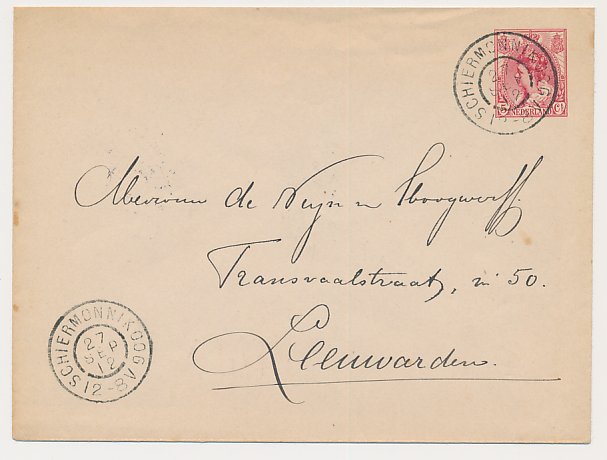 SCHIERMONNIKOOG
27 SEP 12
12-8V
5 NEDERLAND Ct
Mevrouw de Neijn v Hoogwerff.
Transvaalstraat, n 50.
Leeuwarden.
SCHIERMONNIKOOG
27 SEP 12
12-8V